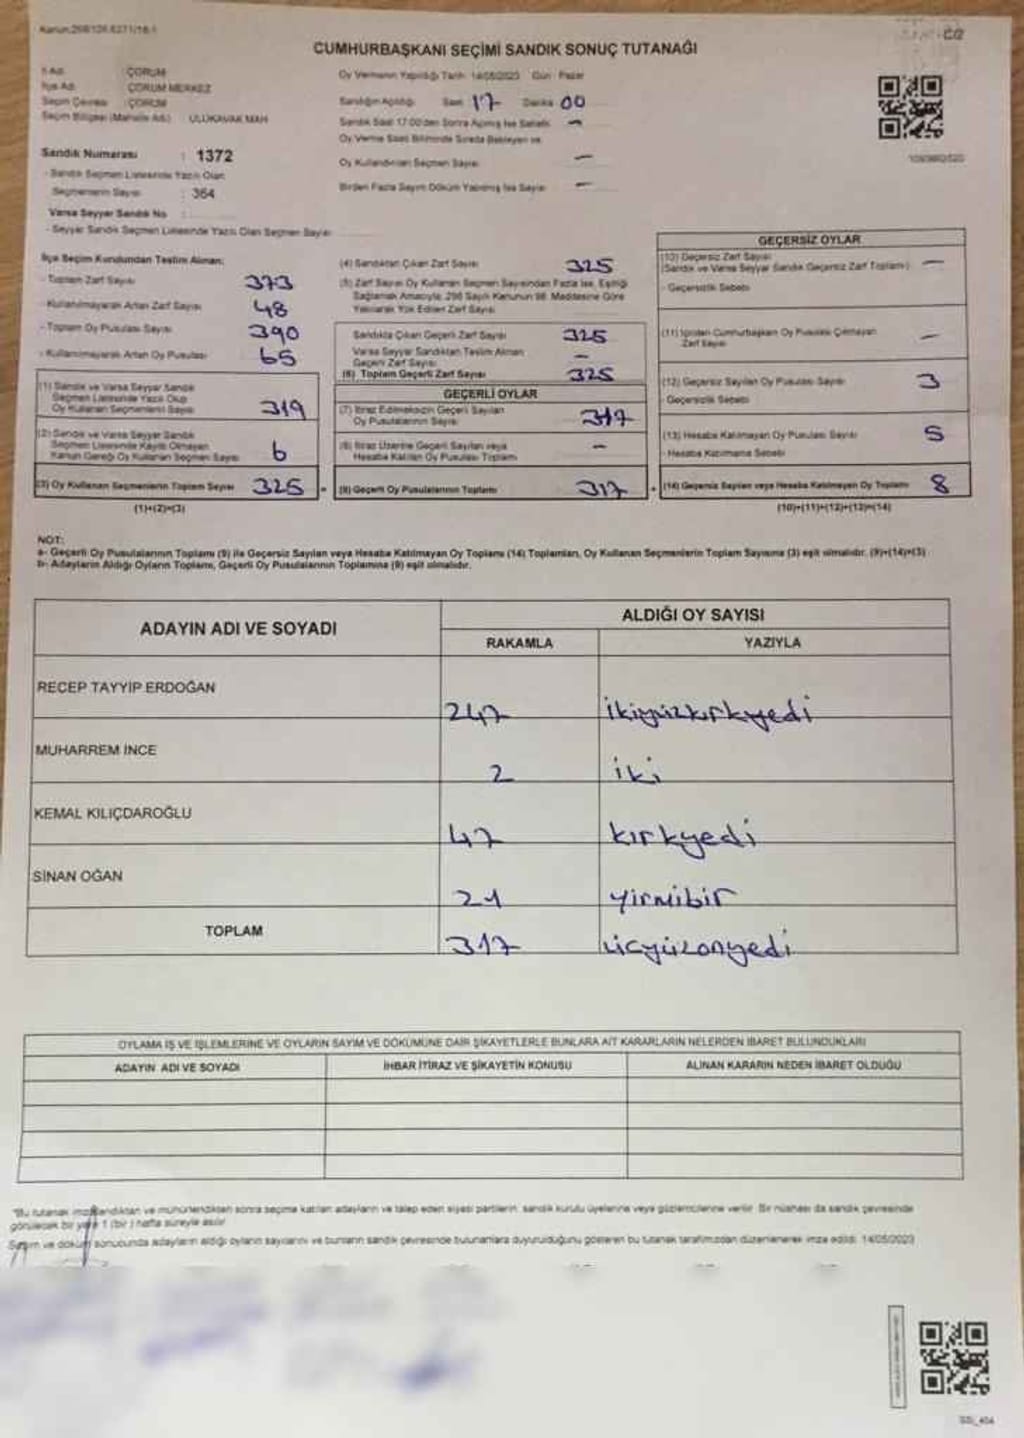 CUMHURBAŞKANI SEÇİMİ SANDIK SONUÇ TUTANAĞI
İl Adı : ÇORUM
İlçe Adı : ÇORUM MERKEZ
Seçim Çevresi : ÇORUM
Seçim Bölgesi (Mahalle Adı) : ULUKAVAK MAH
Sandık Numarası : 1372
- Sandık Seçmen Listesinde Yazılı Olan
Seçmenlerin Sayısı : 364
Varsa Seyyar Sandık No :
- Seyyar Sandık Seçmen Listesinde Yazılı Olan Seçmen Sayısı
Oy Vermenin Yapıldığı Tarih : 14/05/2023 Gün : Pazar
Sandığın Açıldığı Saat 17 Dakika 00
Sandık Saat 17.00'den Sonra Açılmış İse Sebebi -
Oy Verme Saati Bitiminde Sırada Bekleyen ve
Oy Kullandırılan Seçmen Sayısı -
Birden Fazla Sayım Döküm Yapılmış İse Sayısı -
İlçe Seçim Kurulundan Teslim Alınan:
- Toplam Zarf Sayısı 373
- Kullanılmayarak Artan Zarf Sayısı 48
- Toplam Oy Pusulası Sayısı 390
- Kullanılmayarak Artan Oy Pusulası 65
(1) Sandık ve Varsa Seyyar Sandık
Seçmen Listesinde Yazılı Olup
Oy Kullanan Seçmenlerin Sayısı 319
(2) Sandık ve Varsa Seyyar Sandık
Seçmen Listesinde Kayıtlı Olmayan
Kanun Gereği Oy Kullanan Seçmen Sayısı 6
(3) Oy Kullanan Seçmenlerin Toplam Sayısı 325
(1)+(2)=(3)
(4) Sandıktan Çıkan Zarf Sayısı 325
(5) Zarf Sayısı Oy Kullanan Seçmen Sayısından Fazla İse, Eşitliği
Sağlamak Amacıyla, 298 Sayılı Kanunun 98. Maddesine Göre
Yakılarak Yok Edilen Zarf Sayısı
Sandıkta Çıkan Geçerli Zarf Sayısı 325
Varsa Seyyar Sandıktan Teslim Alınan
Geçerli Zarf Sayısı -
(6) Toplam Geçerli Zarf Sayısı 325
GEÇERLİ OYLAR
(7) İtiraz Edilmeksizin Geçerli Sayılan
Oy Pusulalarının Sayısı 317
(8) İtiraz Üzerine Geçerli Sayılan veya
Hesaba Katılan Oy Pusulası Toplamı -
(9) Geçerli Oy Pusulalarının Toplamı 317
GEÇERSİZ OYLAR
(10) Geçersiz Zarf Sayısı
(Sandık ve Varsa Seyyar Sandık Geçersiz Zarf Toplamı) -
- Geçersizlik Sebebi
(11) İçinden Cumhurbaşkanı Oy Pusulası Çıkmayan
Zarf Sayısı -
(12) Geçersiz Sayılan Oy Pusulası Sayısı 3
- Geçersizlik Sebebi
(13) Hesaba Katılmayan Oy Pusulası Sayısı 5
- Hesaba Katılmama Sebebi
(14) Geçersiz Sayılan veya Hesaba Katılmayan Oy Toplamı 8
(10)+(11)+(12)+(13)=(14)
NOT:
a- Geçerli Oy Pusulalarının Toplamı (9) ile Geçersiz Sayılan veya Hesaba Katılmayan Oy Toplamı (14) Toplamları, Oy Kullanan Seçmenlerin Toplam Sayısına (3) eşit olmalıdır. (9)+(14)=(3)
b- Adayların Aldığı Oyların Toplamı, Geçerli Oy Pusulalarının Toplamına (9) eşit olmalıdır.
ADAYIN ADI VE SOYADI
ALDIĞI OY SAYISI
RAKAMLA YAZIYLA
RECEP TAYYİP ERDOĞAN 247 ikiyüzkırkyedi
MUHARREM İNCE 2 iki
KEMAL KILIÇDAROĞLU 47 kırkyedi
SİNAN OĞAN 21 yirmibir
TOPLAM 317 üçyüzonyedi
OYLAMA İŞ VE İŞLEMLERİNE VE OYLARIN SAYIM VE DÖKÜMÜNE DAİR ŞİKAYETLERLE BUNLARA AİT KARARLARIN NELERDEN İBARET BULUNDUKLARI
ADAYIN ADI VE SOYADI İHBAR İTİRAZ VE ŞİKAYETİN KONUSU ALINAN KARARIN NEDEN İBARET OLDUĞU
*Bu tutanak imzalandıktan ve mühürlendikten sonra seçime katılan adayların ve talep eden siyasi partilerin, sandık kurulu üyelerine veya gözlemcilerine verilir. Bir nüshası da sandık çevresinde
görülecek bir yere 1 (bir) hafta süreyle asılır
Seçim ve döküm sonucunda adayların aldığı oyların sayılarını ve bunların sandık çevresinde bulunanlara duyurulduğunu gösteren bu tutanak tarafımızdan düzenlenerek imza edildi. 14/05/2023